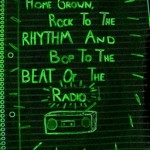 HOME GROWN,
ROCK TO THE
RHYTHM AND
BOP TO THE
BEAT OF THE
RADIO